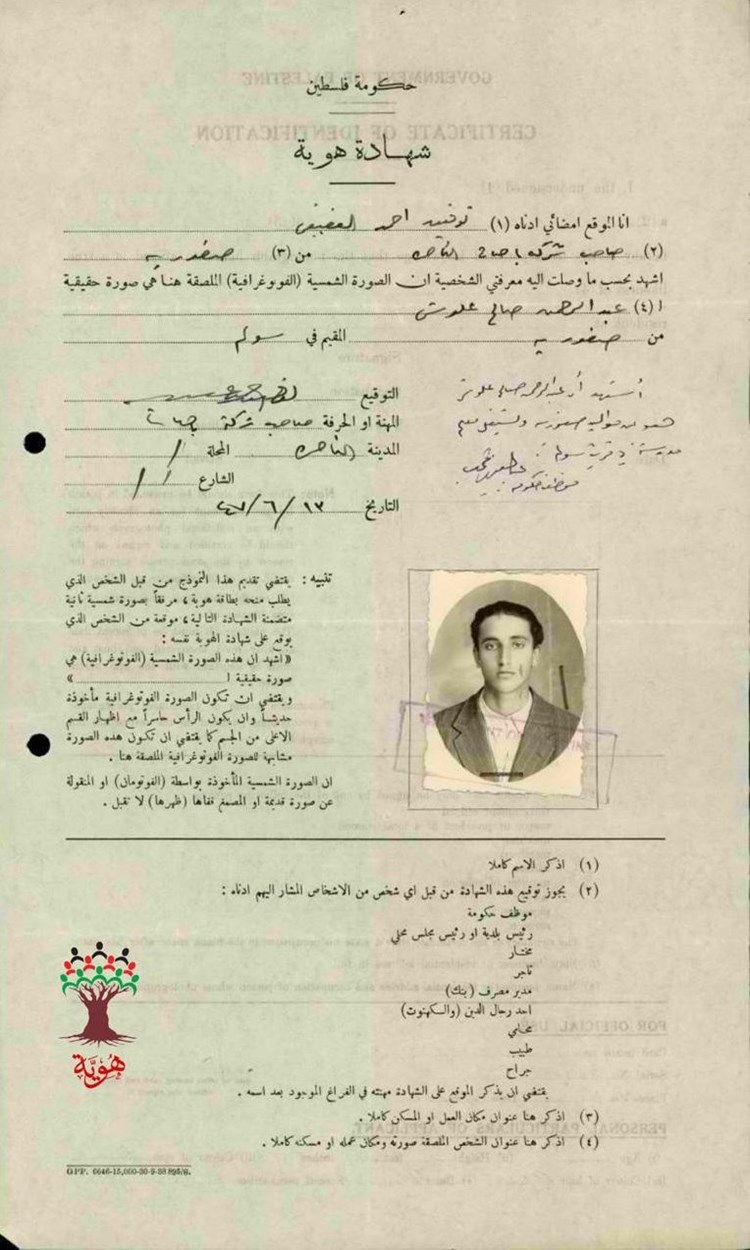 حكومة فلسطين
شهادة هوية
انا الموقع امضائي ادناه (١) توفيق احمد
(٢) صاحب شركة باصات الناصرة من (٣) صفوريه
اشهد بحسب ما وصلت اليه معرفتي الشخصية ان الصورة الشمسية (الفوتوغرافية) الملصقة هنا هي صورة حقيقية
ا (٤) عبد الرحمن صالح علوش
من صفوريه المقيم في سولم
التوقيع
المهنة او الحرفة صاحب شركة باصات
المدينة الناصره المحلة /
الشارع / /
التاريخ ١٣/٦/٤٧
أستشهد أن عبد الرحمن صالح علوش
هو من مواليد صفوريه ويشتغل معلم
مدرسة في قرية سولم
موظف حكومة
تنبيه : يقتضي تقديم هذا النموذج من قبل الشخص الذي
يطلب منحه بطاقة هوية، مرفقاً بصورة شمسية ثانية
متضمنة الشهادة التالية، موقعة من الشخص الذي
يوقع على شهادة الهوية نفسه :
«اشهد ان هذه الصورة الشمسية (الفوتوغرافية) هي
صورة حقيقية ا ـــــــ »
ويقتضي ان تكون الصورة الفوتوغرافية مأخوذة
حديثاً وان يكون الرأس حاسراً مع اظهار القسم
الاعلى من الجسم كما يقتضي ان تكون هذه الصورة
مشابهة للصورة الفوتوغرافية الملصقة هنا .
ان الصورة الشمسية المأخوذة بواسطة (الفوتومان) او المنقولة
عن صورة قديمة او المصمغ قفاها (ظهرها) لا تقبل .
(١) اذكر الاسم كاملا
(٢) يجوز توقيع هذه الشهادة من قبل اي شخص من الاشخاص المشار اليهم ادناه :
موظف حكومة
رئيس بلدية او رئيس مجلس محلي
مختار
تاجر
مدير مصرف (بنك)
احد رجال الدين (والكهنوت)
محامي
طبيب
جراح
يقتضي ان يذكر الموقع على الشهادة مهنته في الفراغ الموجود بعد اسمه .
(٣) اذكر هنا عنوان مكان العمل او المسكن كاملا .
(٤) اذكر هنا عنوان الشخص الملصقة صورته ومكان عمله او مسكنه كاملا .
هُويَّة
GPP. 6646-15,000-30-9-38 895/g.